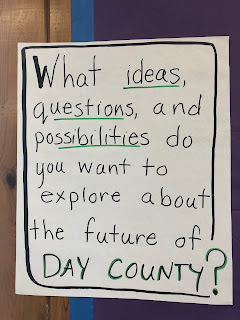 What ideas,
questions, and
possibilities do
you want to
explore about
the future of
DAY COUNTY?